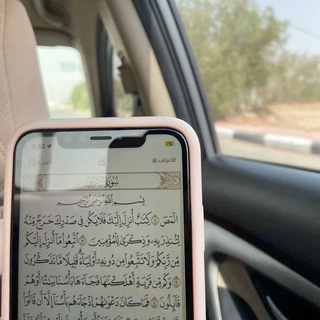 الأعراف
سُورَةُ الأَعْرَافِ
بِسْمِ اللَّهِ الرَّحْمَٰنِ الرَّحِيمِ
الٓمٓصٓ ۝ كِتَٰبٌ أُنزِلَ إِلَيْكَ فَلَا يَكُن فِي صَدْرِكَ حَرَجٌ مِّنْهُ
لِتُنذِرَ بِهِۦ وَذِكْرَىٰ لِلْمُؤْمِنِينَ ۝ ٱتَّبِعُوا۟ مَآ أُنزِلَ إِلَيْكُم
مِّن رَّبِّكُمْ وَلَا تَتَّبِعُوا۟ مِن دُونِهِۦٓ أَوْلِيَآءَ قَلِيلًا مَّا تَذَكَّرُونَ
۝ وَكَم مِّن قَرْيَةٍ أَهْلَكْنَٰهَا فَجَآءَهَا بَأْسُنَا بَيَٰتًا أَوْ هُمْ
قَآئِلُونَ ۝ فَمَا كَانَ دَعْوَىٰهُمْ إِذْ جَآءَهُم بَأْسُنَآ إِلَّآ أَن قَالُوٓا۟